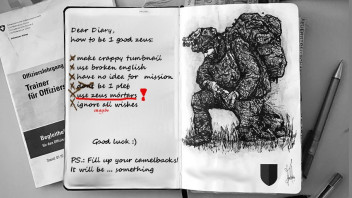 Offizierslehrgang
Trainer
für Offiziers
Begleithe
Dear Diary,
how to be 1 good zeus:
make crappy tumbnail
use broken english
have no idea for mission
dont be 1 pleb
use zeus mortars!
ignore all wishes
maybe
Good luck :)
PS.: Fill up your camelbacks!
It will be ... something